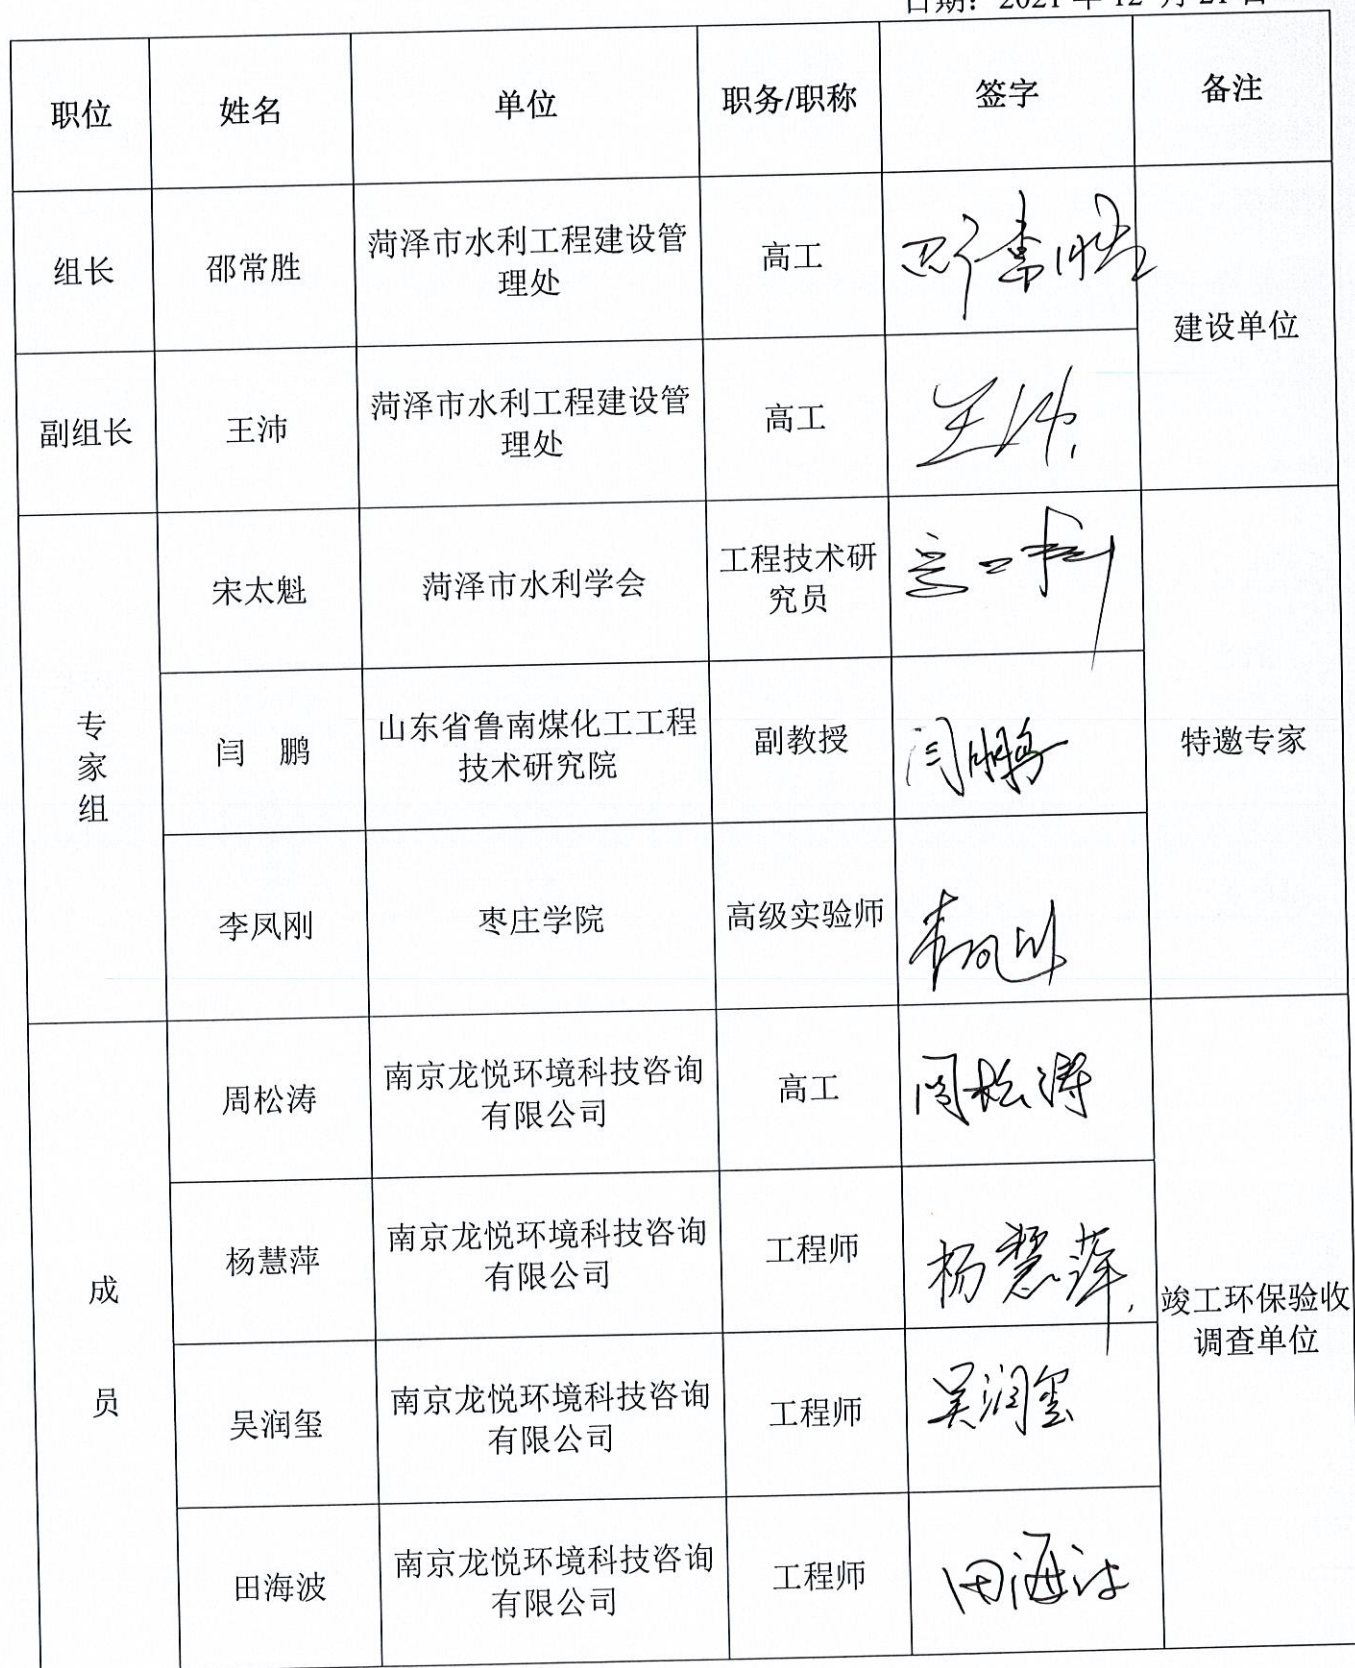 日期：2021 年 12 月 21 日
职位 姓名 单位 职务/职称 签字 备注
组长 邵常胜 菏泽市水利工程建设管
理处 高工 邵常胜
建设单位
副组长 王沛 菏泽市水利工程建设管
理处 高工 王沛
专
家
组
宋太魁 菏泽市水利学会 工程技术研
究员
闫 鹏 山东省鲁南煤化工工程
技术研究院 副教授 闫鹏
特邀专家
李凤刚 枣庄学院 高级实验师 李凤刚
成
员
周松涛 南京龙悦环境科技咨询
有限公司 高工 周松涛
杨慧萍 南京龙悦环境科技咨询
有限公司 工程师 杨慧萍
竣工环保验收
调查单位
吴润玺 南京龙悦环境科技咨询
有限公司 工程师 吴润玺
田海波 南京龙悦环境科技咨询
有限公司 工程师 田海波